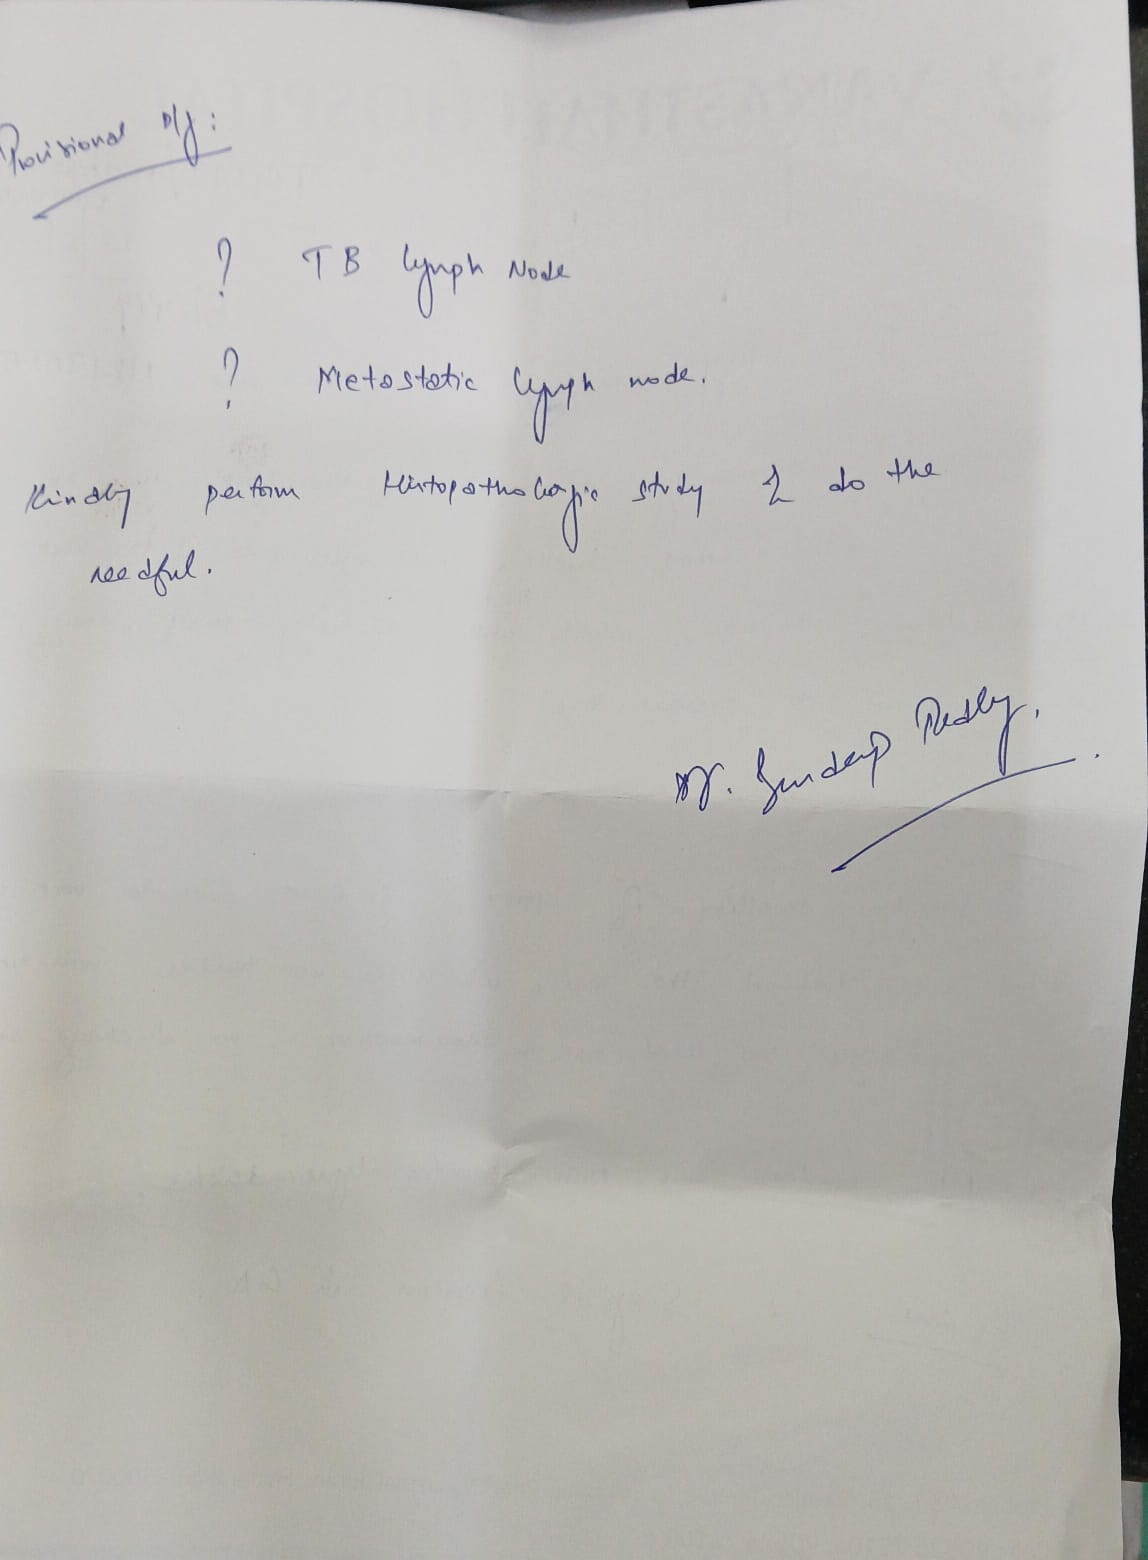 Provisional D/g:
? TB Lymph Node
? Metastatic lymph node.
Kindly perform Histopathologic study & do the
needful.
Dr. Sandeep Reddy.